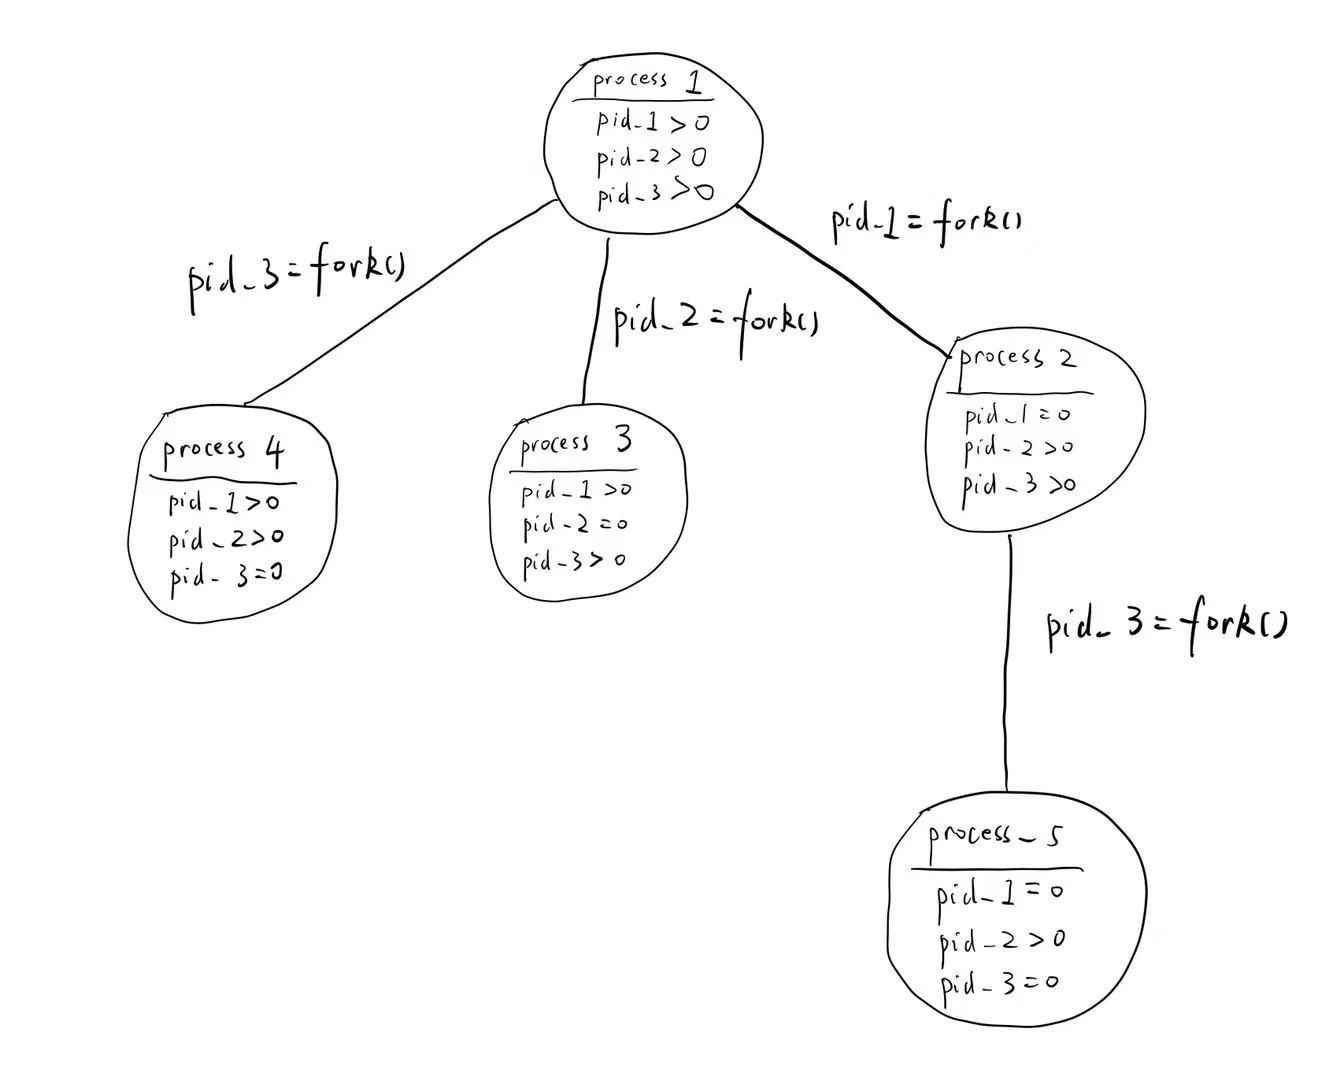 process 1
pid_1 > 0
pid_2 > 0
pid_3 > 0
pid_1 = fork()
pid_3 = fork()
pid_2 = fork()
process 2
pid_1 = 0
pid_2 > 0
pid_3 > 0
process 4
pid_1 > 0
pid_2 > 0
pid_3 = 0
process 3
pid_1 > 0
pid_2 = 0
pid_3 > 0
pid_3 = fork()
process_5
pid_1 = 0
pid_2 > 0
pid_3 = 0